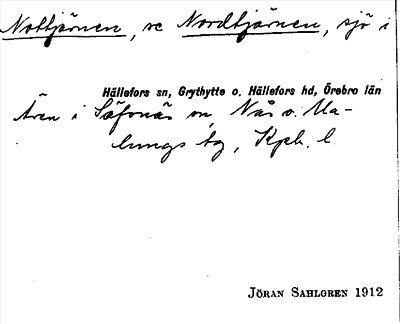 Nottjärnen, se Nordtjärnen, sjö i
Hällefors sn, Grythytte o. Hällefors hd, Örebro län
i Säfsnäs sn, Nås o. Ma-
lungs tg, Kph. l.
JÖRAN SAHLGREN 1912